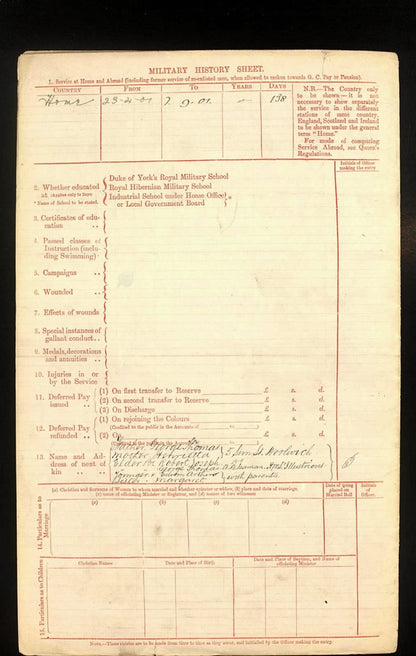 MILITARY HISTORY SHEET.
1. Service at Home and Abroad (including former service of re-enlisted men, when allowed to reckon towards G. C. Pay or Pension).
COUNTRY FROM TO YEARS DAYS
Home 23-4-01 7 9.01. — 138
N.B.—The Country only
to be shown—it is not
necessary to show separately
the service in the different
stations of same country.
England, Scotland and Ireland
to be shown under the general
term "Home."
For mode of computing
Service Abroad, see Queen's
Regulations.
Initials of Officer
making the entry
2. Whether educated at
(applies only to Boys)
*Name of School to be stated.
Duke of York's Royal Military School
Royal Hibernian Military School
Industrial School under Home Office
or Local Government Board
3. Certificates of edu-
cation ..
4. Passed classes of
Instruction (inclu-
ding Swimming)
5. Campaigns ..
6. Wounded ..
7. Effects of wounds
8. Special instances of
gallant conduct..
9. Medals, decorations
and annuities ..
10. Injuries in or
by the Service
11. Deferred Pay
issued ..
(1) On first transfer to Reserve £ s. d.
(2) On second transfer to Reserve £ s. d.
(3) On Discharge £ s. d.
12. Deferred Pay
refunded ..
(1) On rejoining the Colours £ s. d.
(Credited to the public in the Accounts of )
(2) On £ s. d.
(Credited to the public in the Accounts of )
13. Name and Ad-
dress of next of
kin ..
Father George Thomas
Mother Henrietta
5 Sun St. Woolwich
Elder Br. Robert Joseph
George Thomas
HMS Illustrious
Younger
Sister Margaret
with parents
14. Particulars as to
Marriage
(a) Christian and Surname of Woman to whom married and whether spinster or widow, (b) place and date of marriage,
(c) name of officiating Minister or Registrar, and (d) names of two witnesses
Date of being
placed on
Married Roll
Initials
of
Officer.
(a) (b) (c) (d)
15. Particulars as to Children
Christian Names
Date and Place of Birth
Date and Place of Baptism, and Name of
officiating Minister
NOTE.—These entries are to be made from time to time as they occur, and initialled by the Officer making the entry.